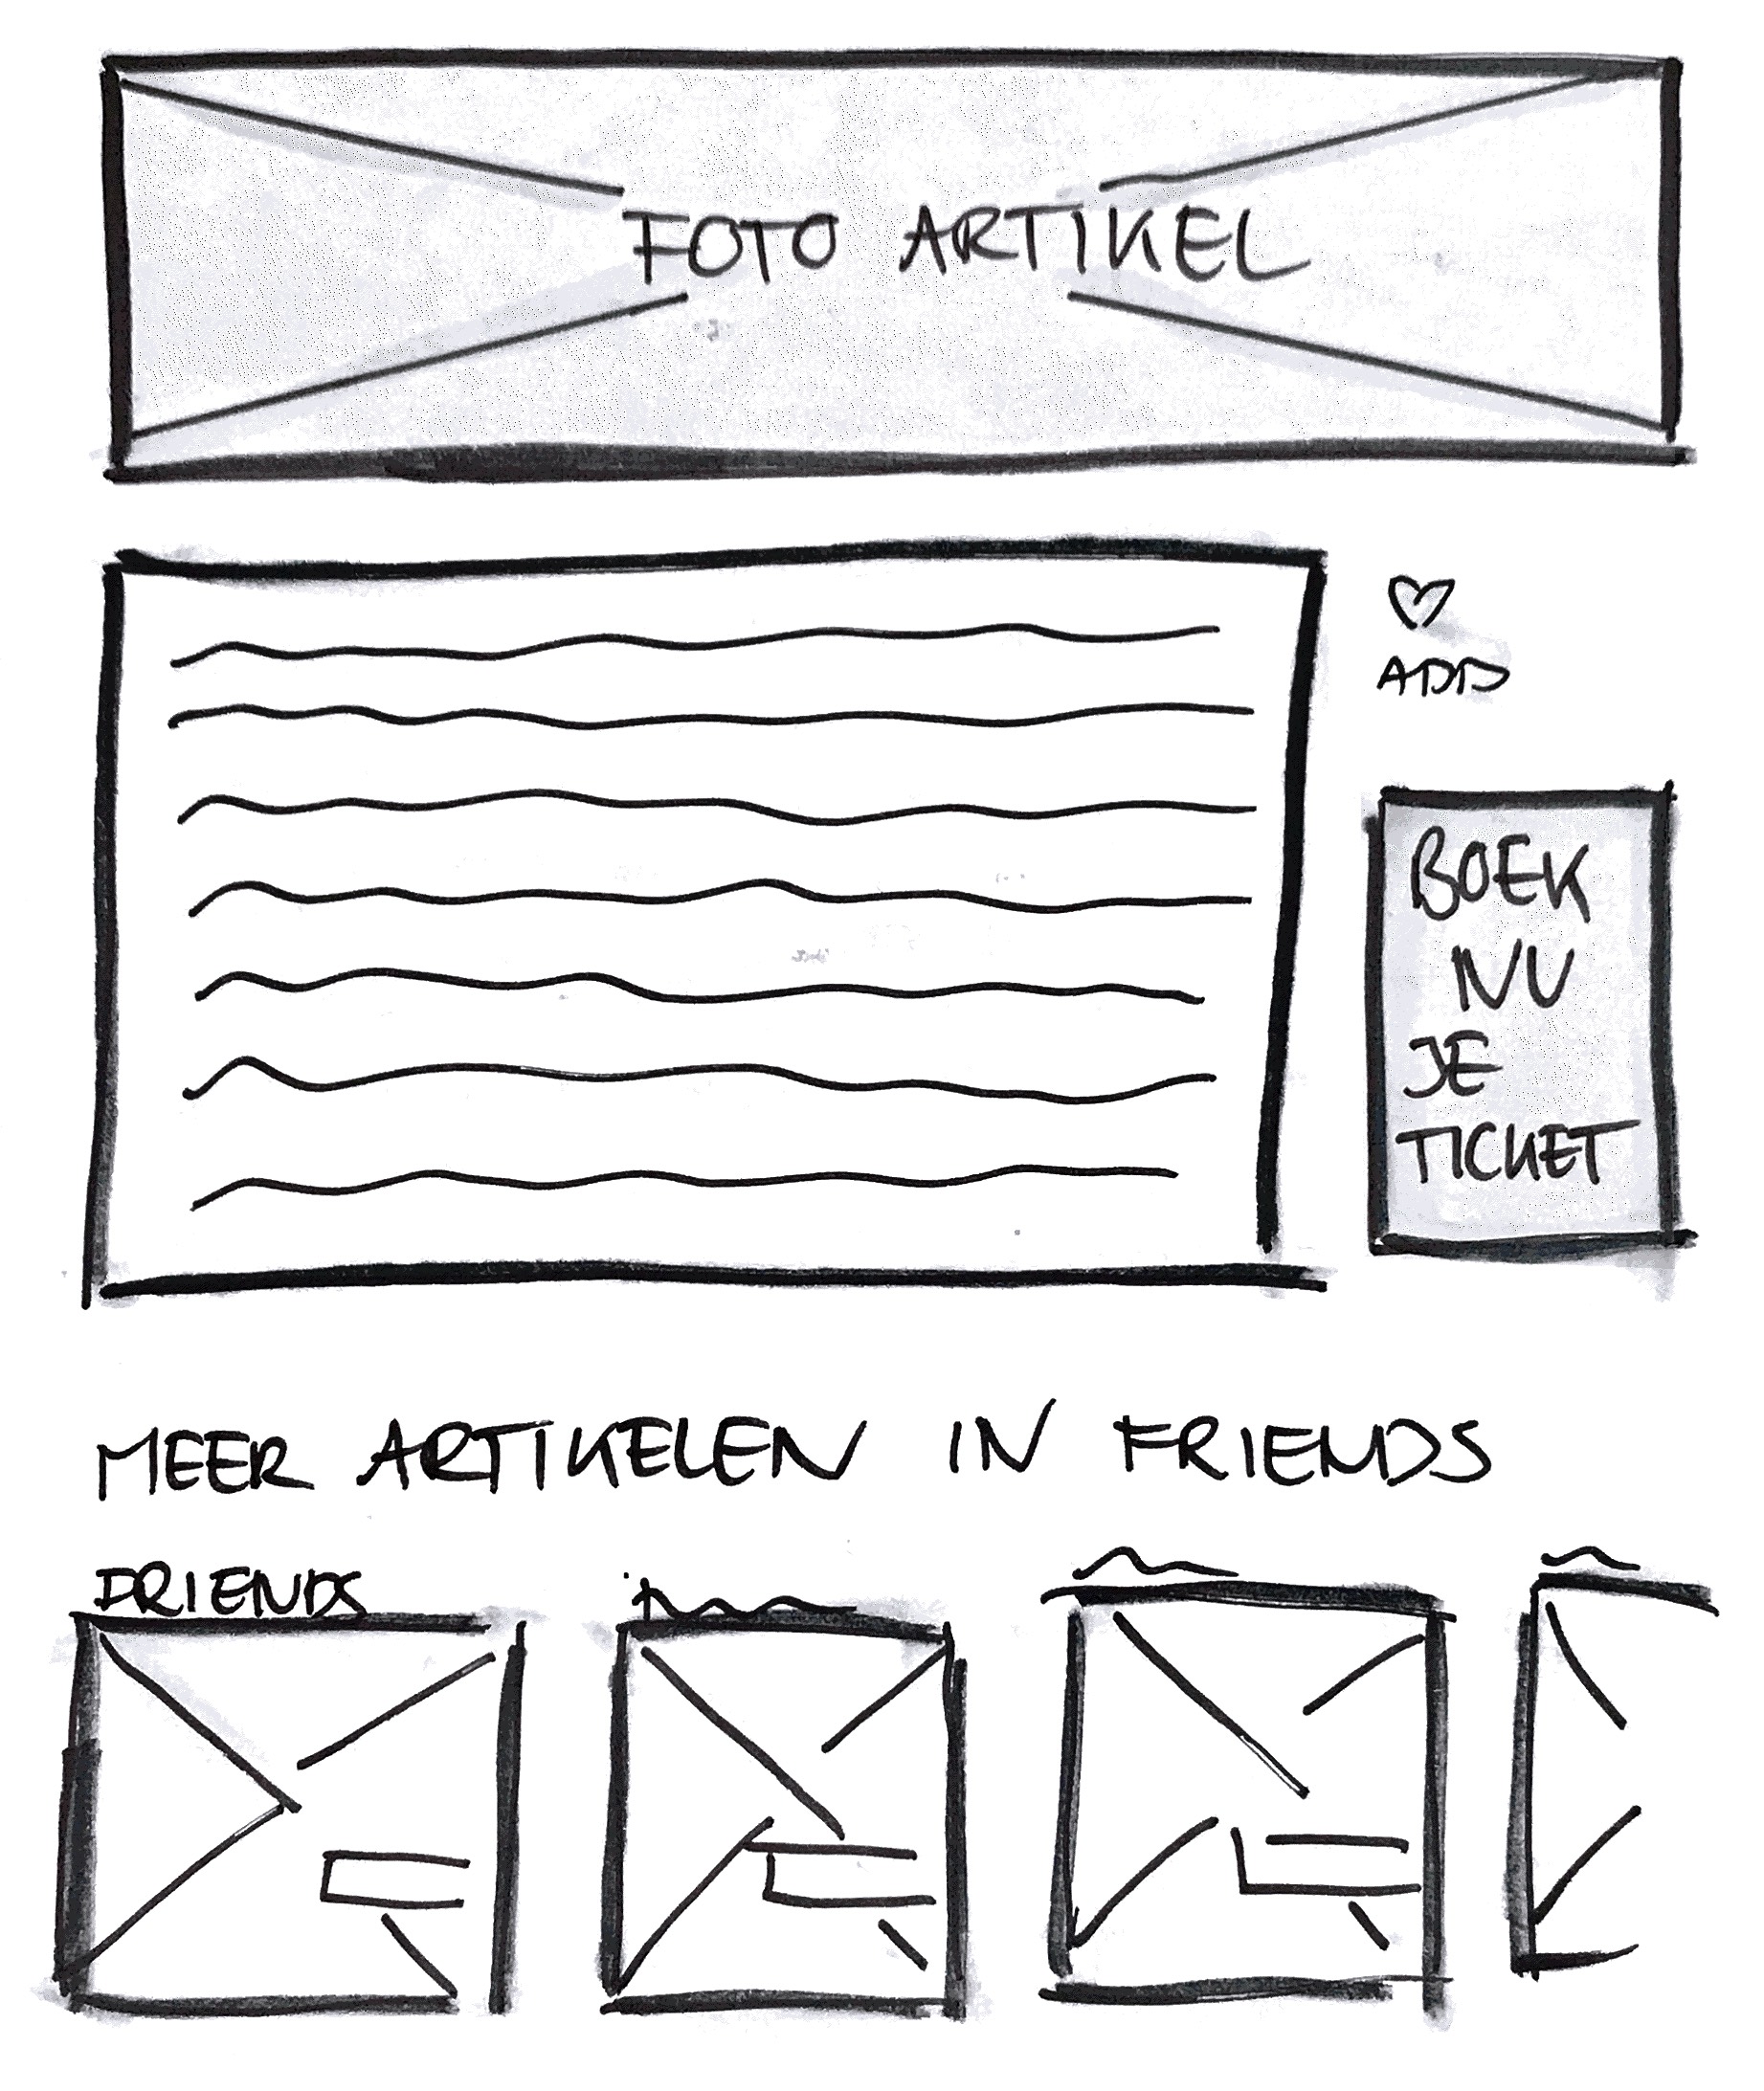 FOTO ARTIKEL
ADD
BOEK
NU
JE
TICKET
MEER ARTIKELEN IN FRIENDS
DRIENDS